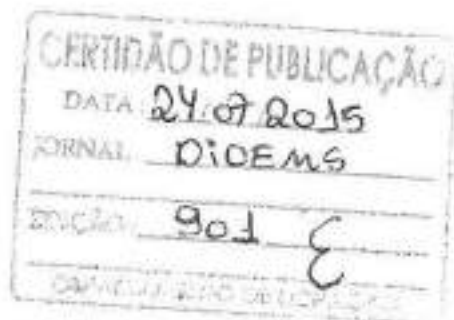 CERTIDÃO DE PUBLICAÇÃO
DATA 24.07 2015
JORNAL DiOEMS
EDIÇÃO 901